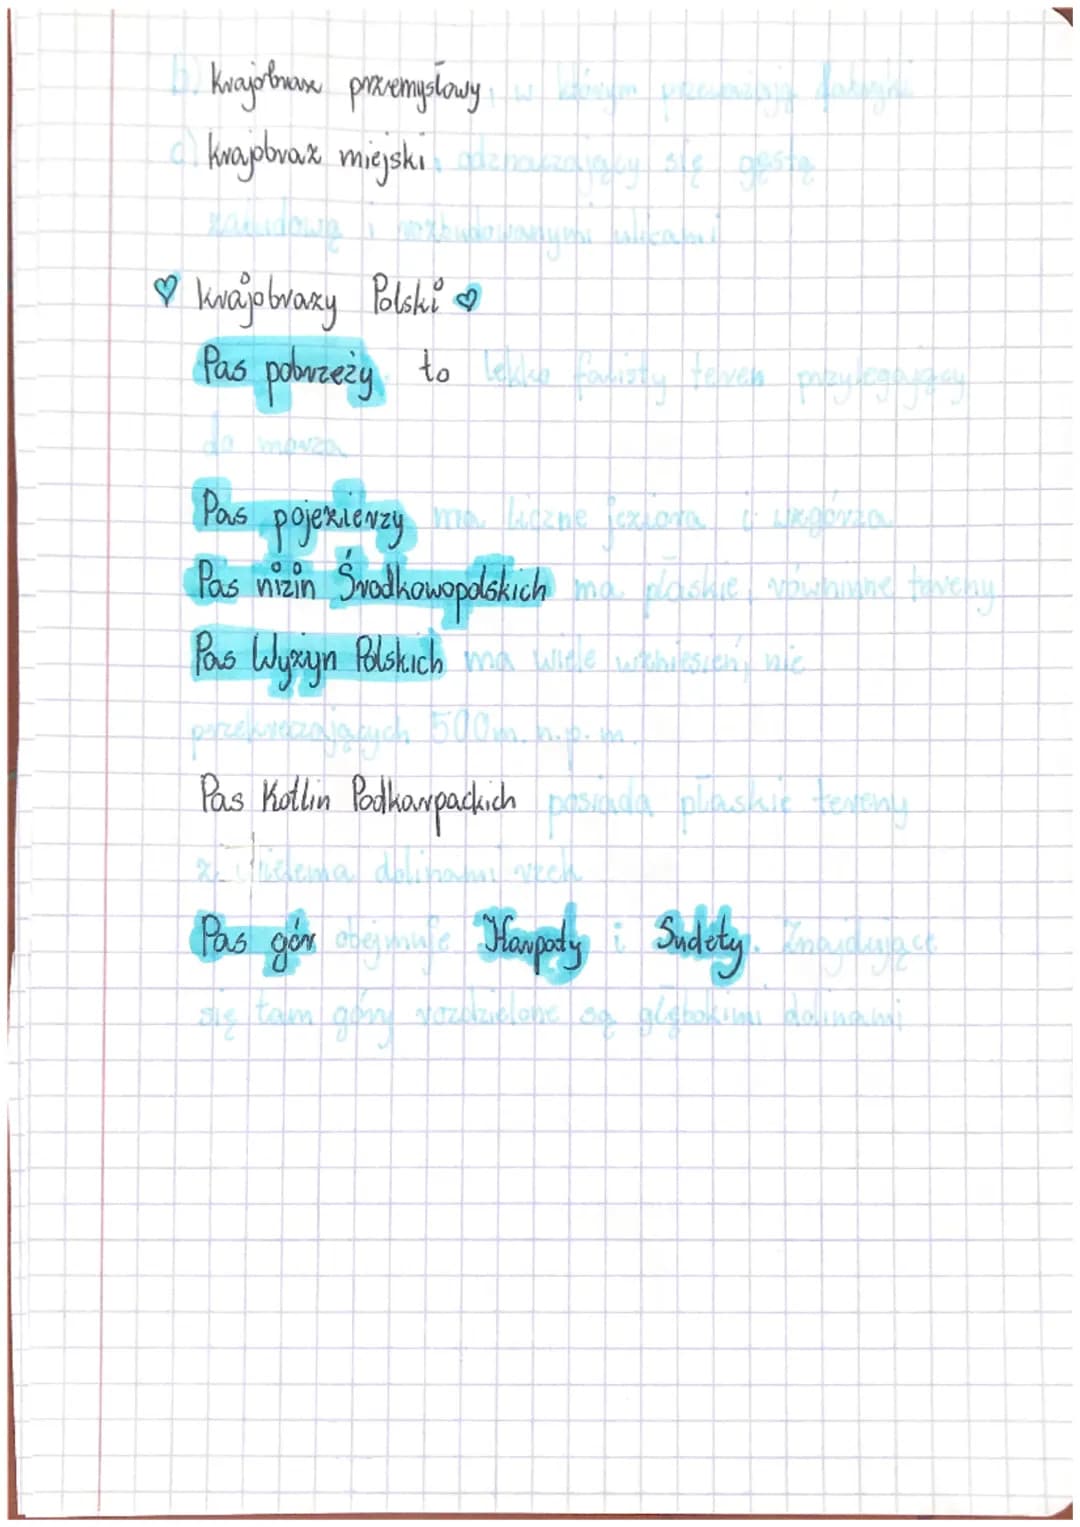 b. Krajobraz przemysłowy, w którym przeważają fabryki
c) Krajobraz miejski, odznaczający się gęstą
zabudową i rozbudowanymi ulicami
♡ Krajobrazy Polski ♡
Pas pobrzeży to lekko falisty teren przylegający
do morza
Pas pojezierzy ma liczne jeziora i wzgórza
Pas nizin Środkowopolskich ma płaskie, równinne tereny
Pas Wyżyn Polskich ma wiele wzniesień, nie
przekraczających 500m. n.p.m.
Pas Kotlin Podkarpackich posiada płaskie tereny
z wieloma dolinami rzek
Pas gór obejmuje Karpaty i Sudety. Znajdujące
się tam góry rozdzielone są głębokimi dolinami